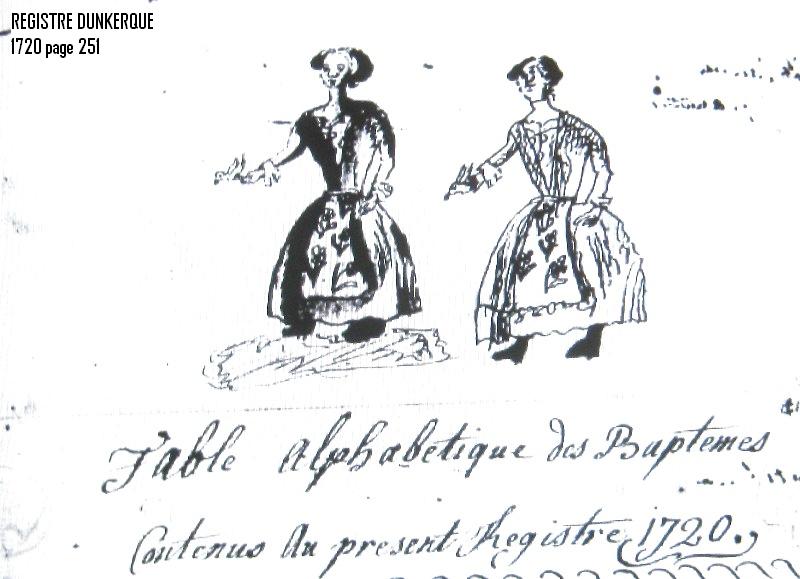 REGISTRE DUNKERQUE
1720 page 251
Table Alphabetique des Baptemes
Contenus Au present Registre 1720.